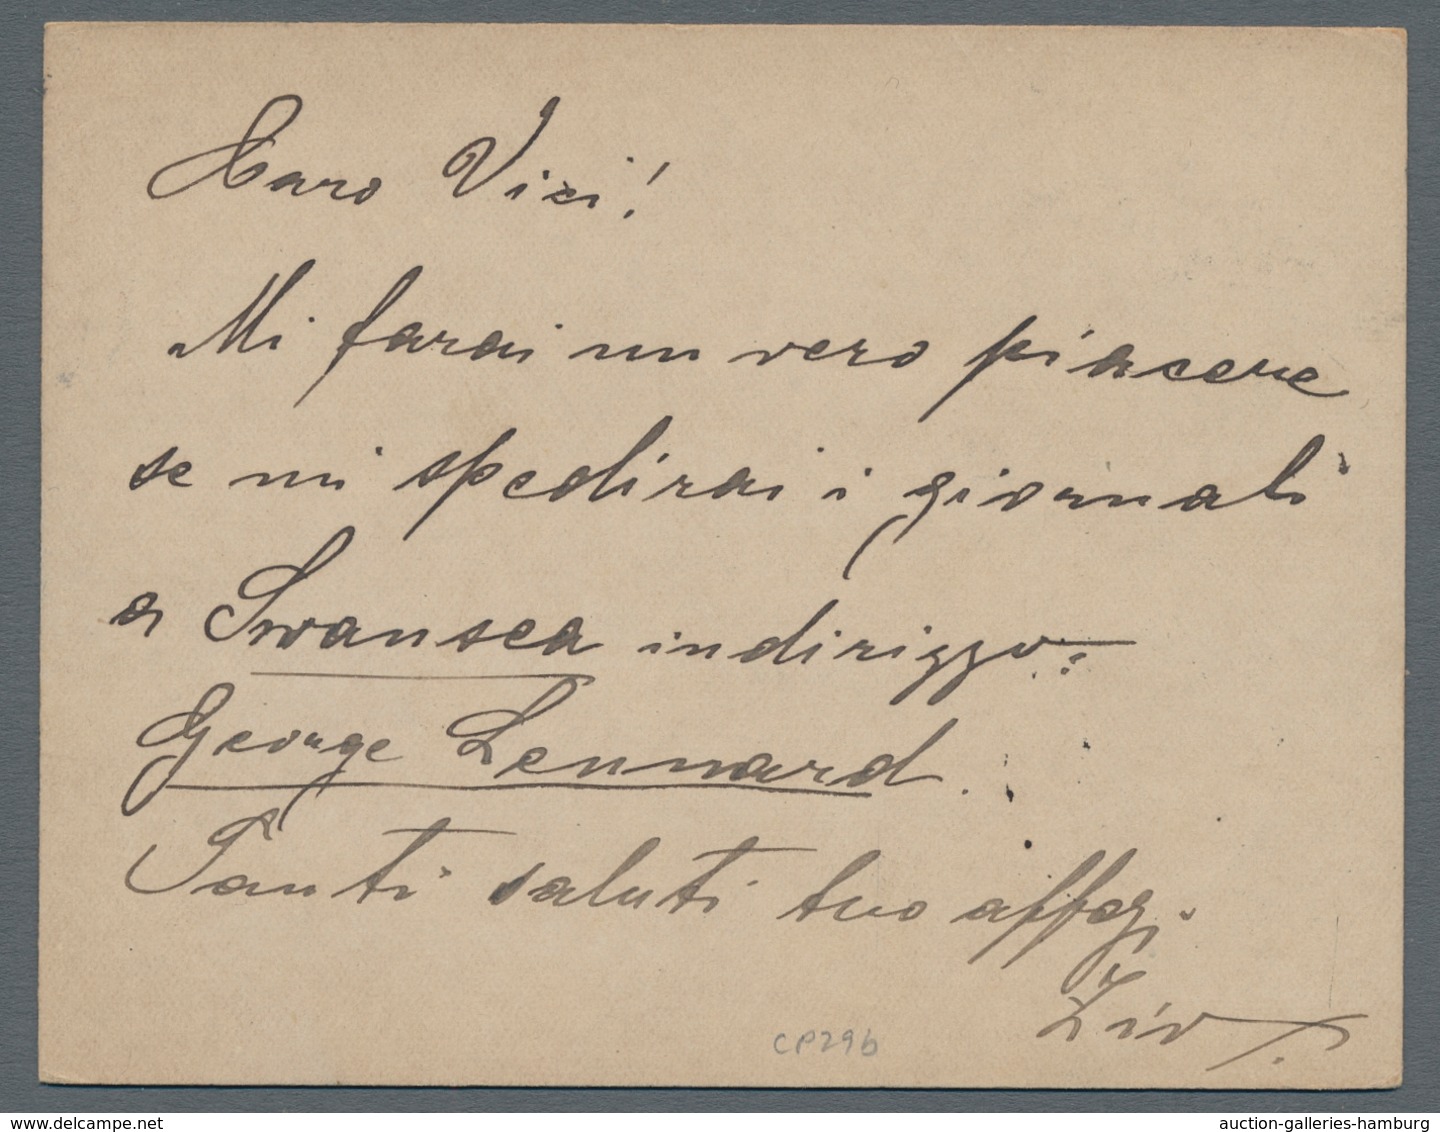 Caro Vizi!
Mi farai un vero piacere
se mi spedirai i giornali
a Swansea indirizzo:
George Lennard.
Tanti saluti tuo affez.
Zio
CP29b
www.delcampe.net
auction-galleries-hamburg